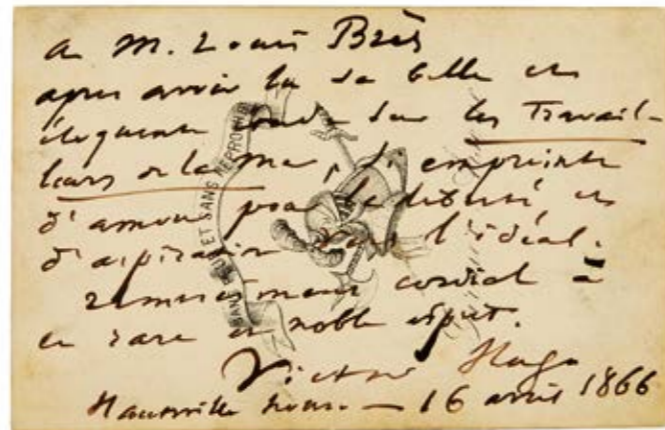 a M. Louis Brès
après avoir lu sa belle et
éloquente étude sur les Travail-
leurs de la Mer, si empreinte
d'amour pour la liberté et
d'aspiration vers l'idéal.
remerciement cordial à
ce rare et noble esprit.
Victor Hugo
Hauteville house — 16 avril 1866
SANS PEUR ET SANS REPROCHE